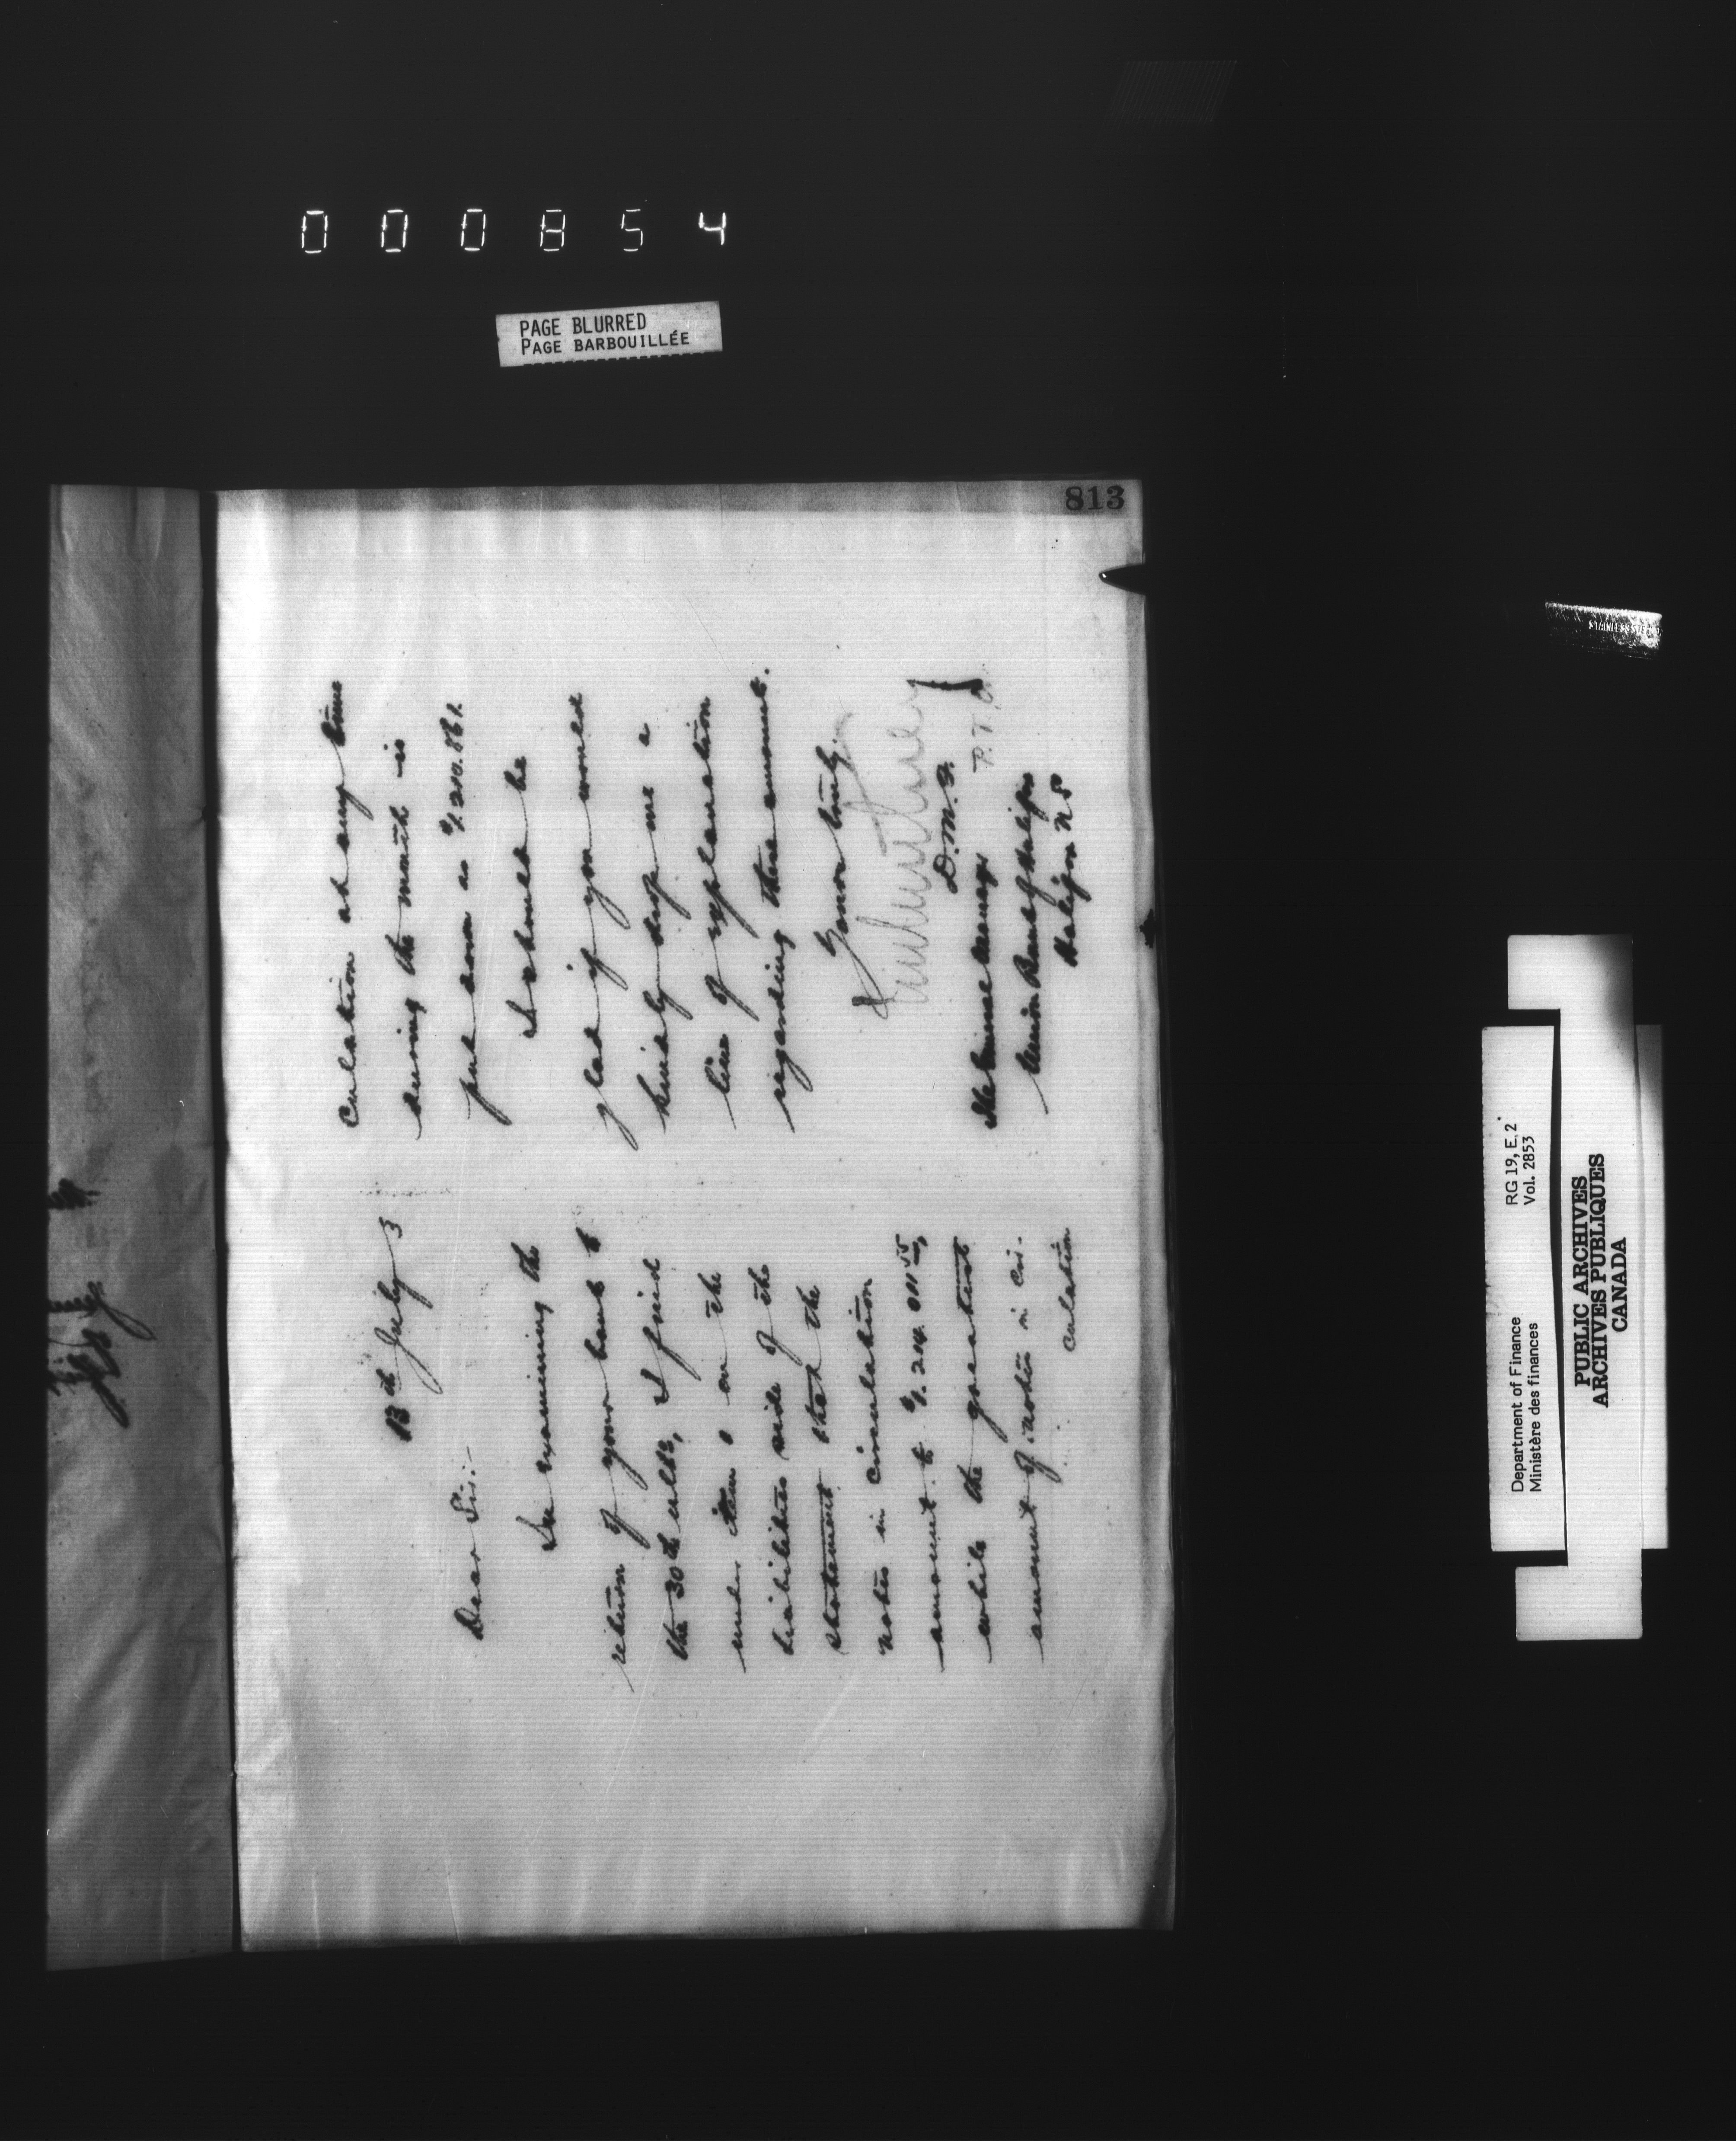 000854
PAGE BLURRED
PAGE BARBOUILLÉE
813
13th July 3
Dear Sir:—
In examining the
return of your bank to
the 30th ulto, I find
under item 1 on the
liabilities side of the
statement that the
notes in circulation
amount to $1.214.011
while the greatest
amount of notes in cir-
culation
culation at any time
during the month is
put down as $1.210.861.
I should be
glad if you would
kindly drop me a
line of explanation
regarding this amount.
Yours truly
D.M.F.
P.T.O.
Union Bank of Halifax
Halifax NS
Department of Finance
Ministère des finances
RG 19, E, 2
Vol. 2853
PUBLIC ARCHIVES
ARCHIVES PUBLIQUES
CANADA